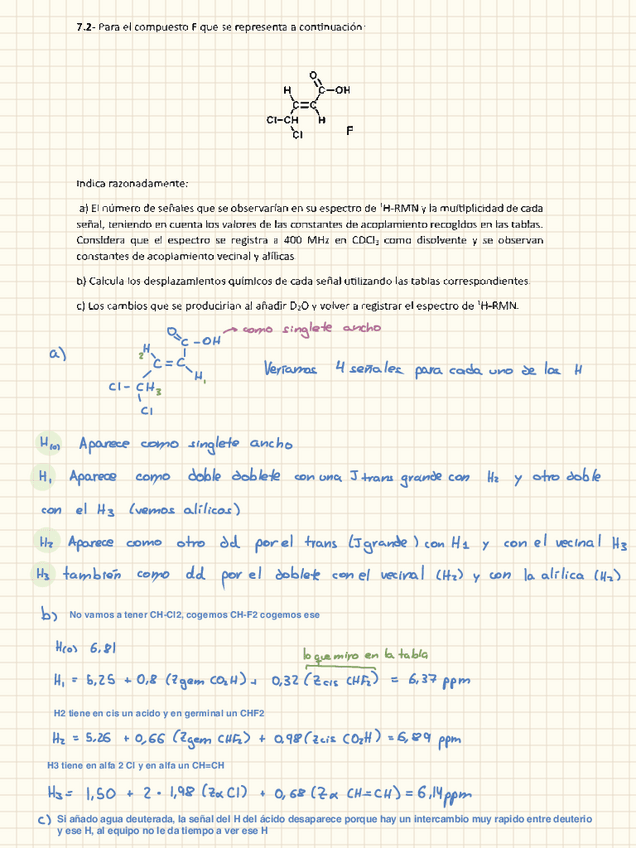 7.2- Para el compuesto F que se representa a continuación:
O
H C-OH
C=C
Cl-CH H
Cl F
Indica razonadamente:
a) El número de señales que se observarían en su espectro de ¹H-RMN y la multiplicidad de cada
señal, teniendo en cuenta los valores de las constantes de acoplamiento recogidos en las tablas.
Considera que el espectro se registra a 400 MHz en CDCl₃ como disolvente y se observan
constantes de acoplamiento vecinal y alílicas
b) Calcula los desplazamientos químicos de cada señal utilizando las tablas correspondientes
c) Los cambios que se producirían al añadir D₂O y volver a registrar el espectro de ¹H-RMN.
a)
O C-OH → como singlete ancho
2 H
C=C H 1
Cl-CH 3
Cl
Veríamos 4 señales para cada uno de los H
H(o) Aparece como singlete ancho
H₁ Aparece como doble doblete con una J trans grande con H₂ y otro doble
con el H₃ (vemos alílicos)
H₂ Aparece como otro dd por el trans (J grande) con H₁ y con el vecinal H₃
H₃ también como dd por el doblete con el vecinal (H₂) y con la alílica (H₂)
b) No vamos a tener CH-Cl2, cogemos CH-F2 cogemos ese
H(o) 6,81
lo que miro en la tabla
H₁ = 5,25 + 0,8 (Zgem CO₂H) + 0,32 (Zcis CHF₂) = 6,37 ppm
H2 tiene en cis un acido y en germinal un CHF2
H₂ = 5,25 + 0,66 (Zgem CHF₂) + 0,98 (Zcis CO₂H) = 6,89 ppm
H3 tiene en alfa 2 Cl y en alfa un CH=CH
H₃ = 1,50 + 2 · 1,98 (Zα Cl) + 0,68 (Zα CH=CH) = 6,14 ppm
c) Si añado agua deuterada, la señal del H del ácido desaparece porque hay un intercambio muy rapido entre deuterio
y ese H, al equipo no le da tiempo a ver ese H